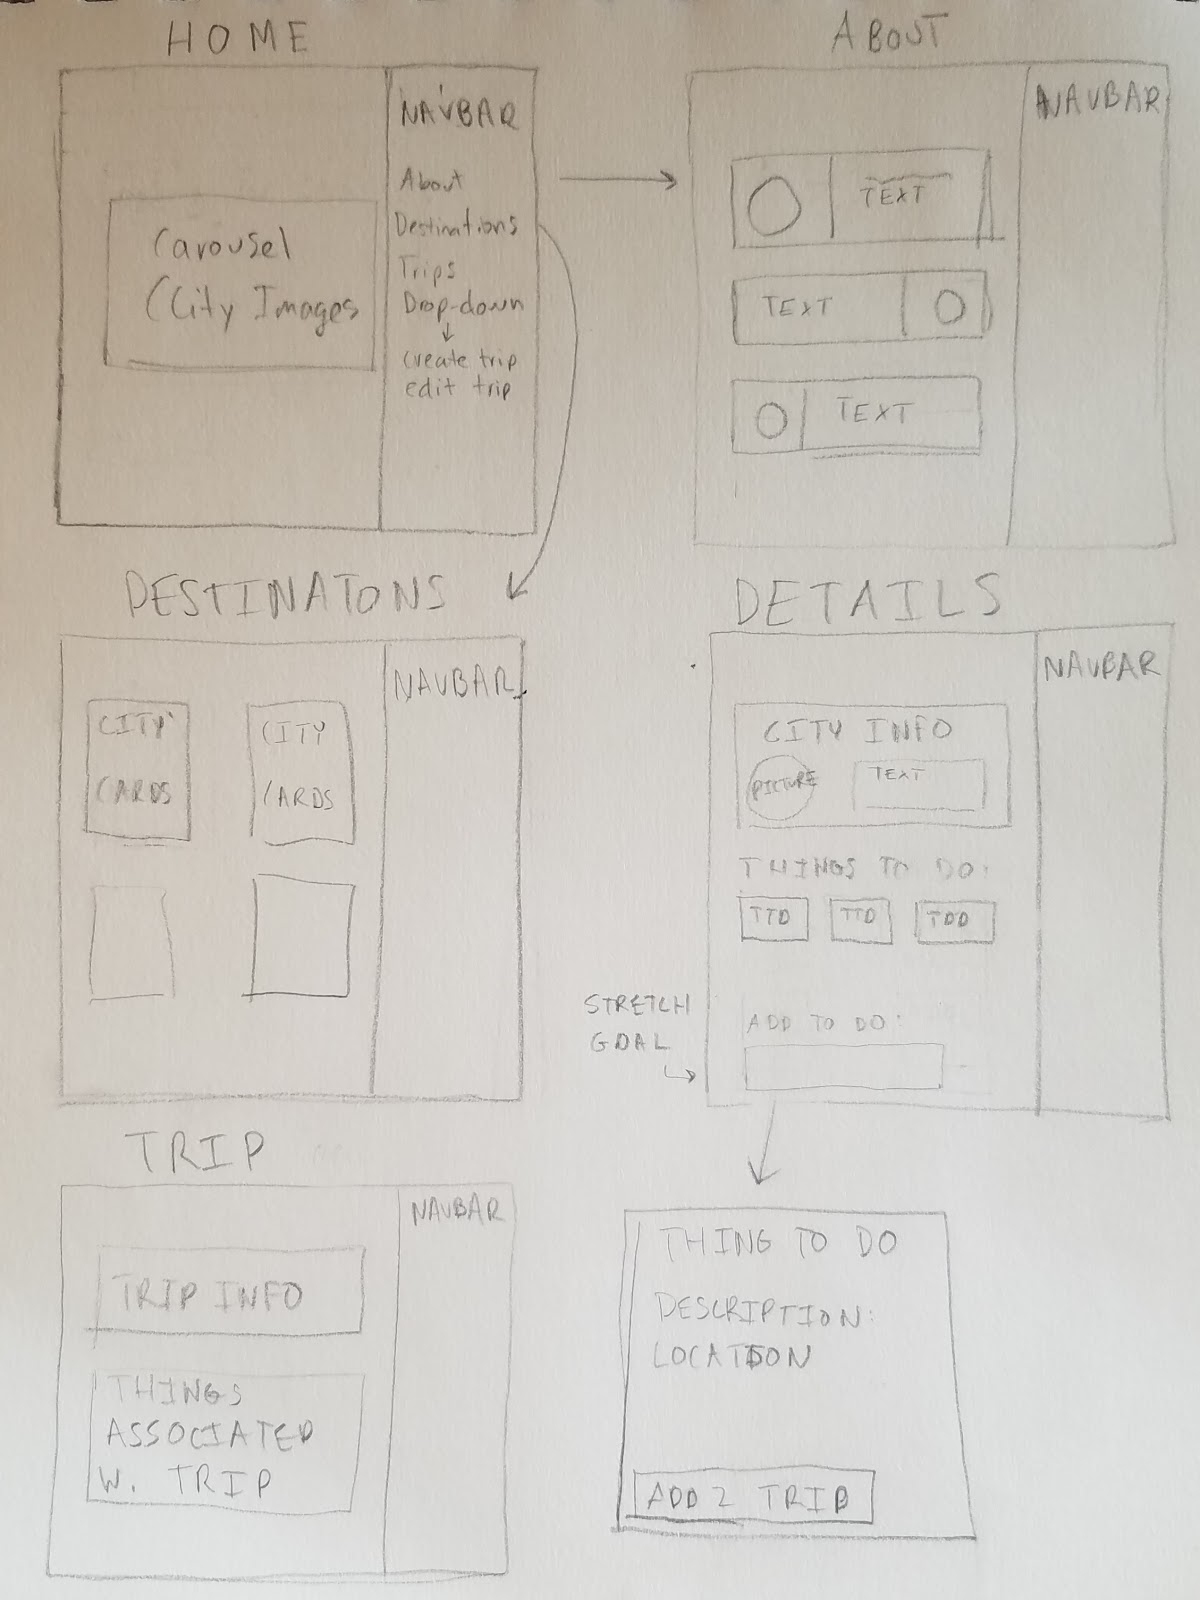 HOME
NAVBAR
About
Destinations
Trips
Drop-down
create trip
edit trip
Carousel
(City Images
ABOUT
NAVBAR
TEXT
TEXT
TEXT
DESTINATONS
NAVBAR
CITY
CARDS
CITY
CARDS
DETAILS
NAVBAR
CITY INFO
PICTURE
TEXT
THINGS TO DO:
TTD TTD TDD
STRETCH
GOAL
ADD TO DO:
TRIP
NAVBAR
TRIP INFO
THINGS
ASSOCIATED
W. TRIP
THING TO DO
DESCRIPTION:
LOCATION
ADD 2 TRIP